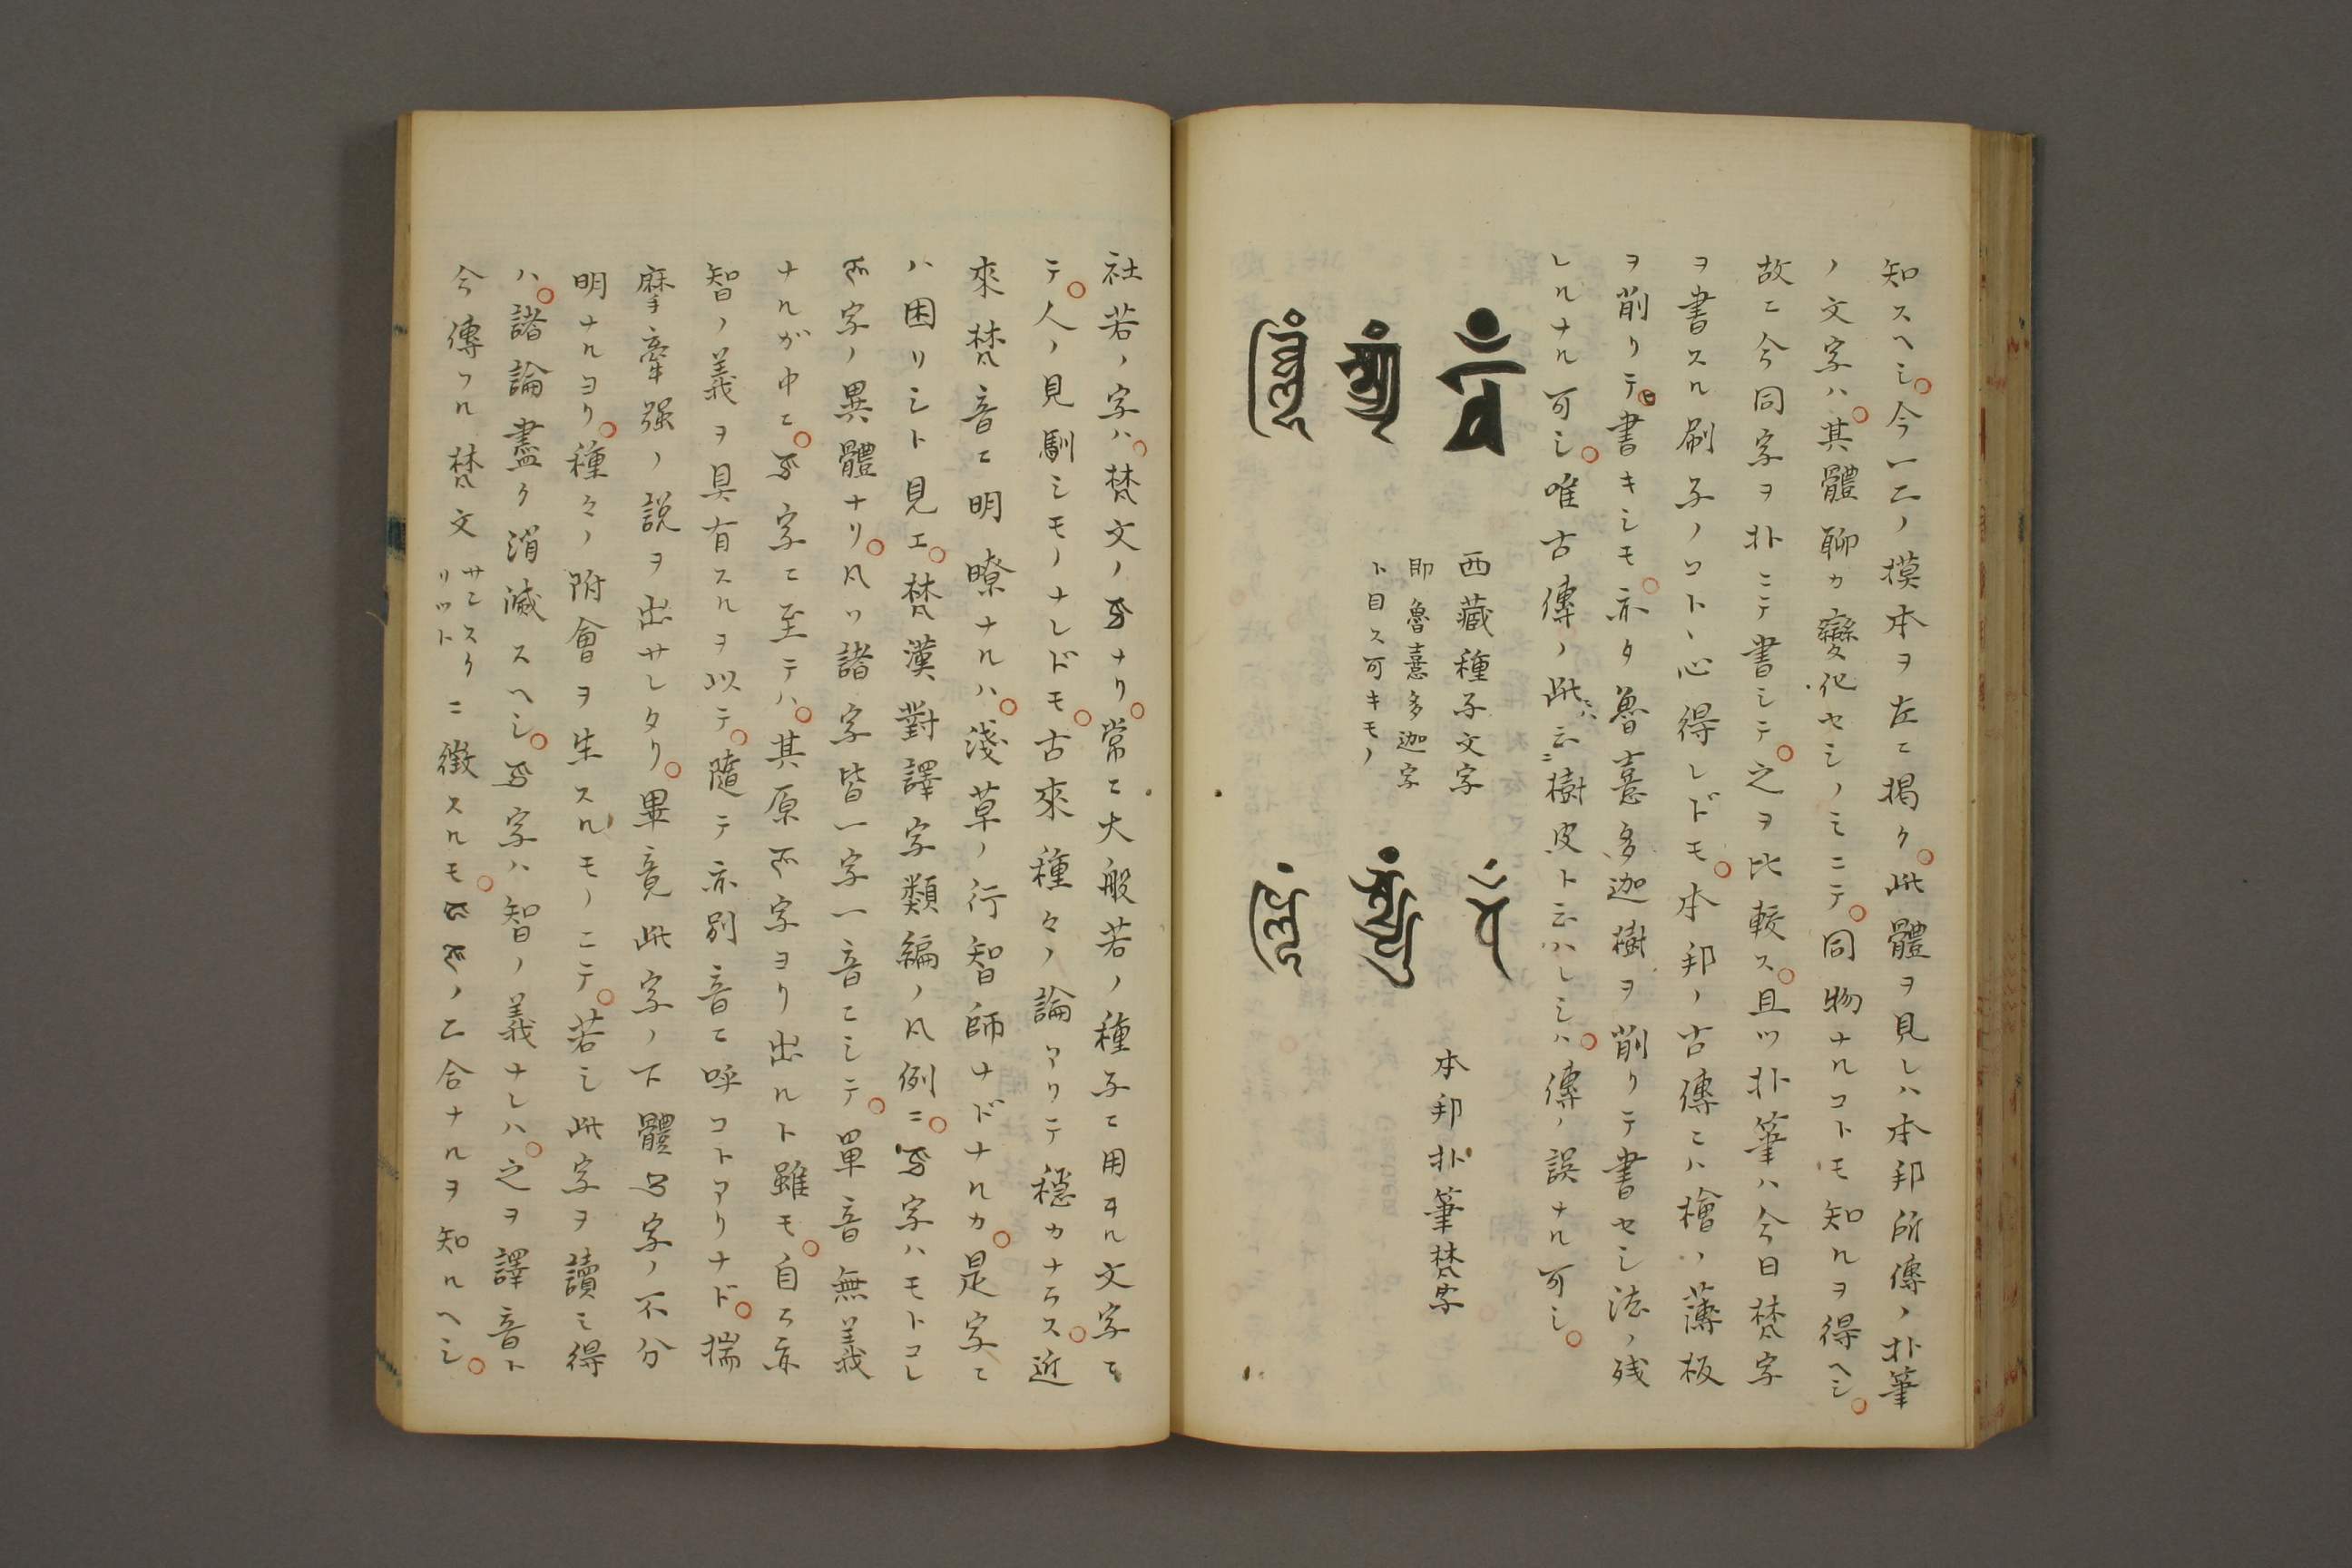 知スヘシ。今一二ノ摸本ヲ左ニ掲ク。此體ヲ見レハ本邦所傳ノ朴筆
ノ文字ハ。其體聊カ變化セシノミニテ。同物ナルコトモ知ルヲ得ヘシ。
故ニ今同字ヲ朴ニテ書シテ。之ヲ比較ス。且ツ朴筆ハ今日梵字
ヲ書スル刷子ノコトヽ心得レドモ。本邦ノ古傳ニハ檜ノ薄板
ヲ削リテ。書キシモ。亦タ魯憙多迦樹ヲ削リテ書セシ法ノ残
レルナル可シ。唯古傳ノ此ニハ云樹皮ト云ハレシハ。傳ノ誤ナル可シ。
西藏種子文字
即魯憙多迦字
ト目ス可キモノ
本邦朴筆梵字
社若ノ字ハ。梵文ノナリ。常ニ大般若ノ種子ニ用ヰル文字ニ
テ。人ノ見馴シモノナレドモ。古來種々ノ論アリテ穩カナラス。近
來梵音ニ明瞭ナルハ。淺草ノ行智師ナドナルカ。是字ニ
ハ困リシト見エ。梵漢對譯字類編ノ凡例ニ。字ハモトコレ
字ノ異體ナリ。凡ツ諸字皆一字一音ニシテ。單音無義
ナルガ中ニ。字ニ至テハ。其原字ヨリ出ルト雖モ。自ラ亦
智ノ義ヲ具有スルヲ以テ。隨テ亦別音ニ呼コトアリナド。揣
摩牽強ノ説ヲ出サレタリ。畢竟此字ノ下體字ノ不分
明ナルヨリ。種々ノ附會ヲ生スルモノニテ。若シ此字ヲ讀ミ得
ハ。諸論盡ク消滅スヘシ。字ハ智ノ義ナレハ。之ヲ譯音ト
今傳フル梵文サンスクリットニ徴スルモ。ノ二合ナルヲ知ルヘシ。